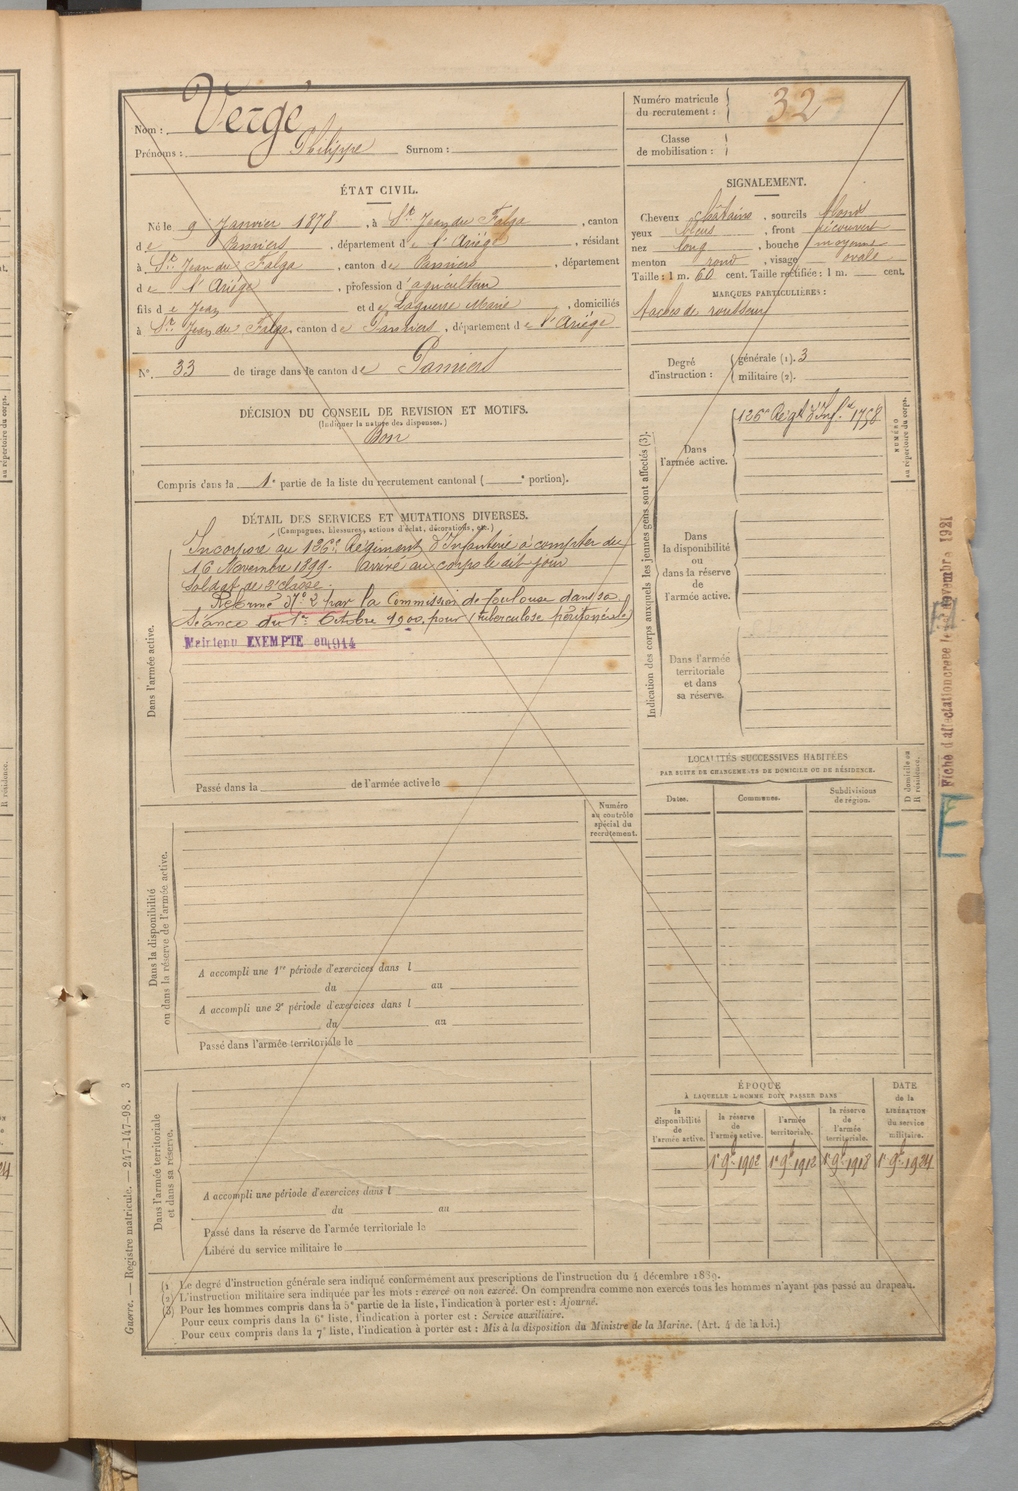 Nom : Vergé
Prénoms : Philippe Surnom :
Numéro matricule
du recrutement : 32
Classe
de mobilisation :
ÉTAT CIVIL.
Né le 9 Janvier 1878, à St Jean du Falga, canton
de Pamiers, département de l'Ariège, résidant
à St Jean du Falga, canton de Pamiers, département
de l'Ariège, profession d'agriculteur
fils de Jean et de Laguerre Marie, domiciliés
à St Jean du Falga, canton de Pamiers, département de l'Ariège
N° 33 de tirage dans le canton de Pamiers
SIGNALEMENT.
Cheveux châtains, sourcils blonds
yeux bleus, front découvert
nez long, bouche moyenne
menton rond, visage ovale
Taille : 1 m. 60 cent. Taille rectifiée : 1 m. cent.
MARQUES PARTICULIÈRES :
Taches de rousseur
Degré
d'instruction :
générale (1). 3
militaire (2).
DÉCISION DU CONSEIL DE REVISION ET MOTIFS.
(Indiquer la nature des dispenses.)
Bon
Compris dans la 1e partie de la liste du recrutement cantonal ( e portion).
DÉTAIL DES SERVICES ET MUTATIONS DIVERSES.
(Campagnes, blessures, actions d'éclat, décorations, etc.)
Dans l'armée active.
Incorporé au 126e Régiment d'Infanterie à compter du
16 Novembre 1899. Arrivé au corps le dit jour
soldat de 2e classe.
Réformé N° 2 par la Commission de Toulouse dans sa
Séance du 1er Octobre 1900 pour (tuberculose péritonéale)
Maintenu EXEMPTE en 1914
Passé dans la de l'armée active le
Indication des corps auxquels les jeunes gens sont affectés (3).
NUMÉRO
au répertoire du corps.
Dans
l'armée active.
126e Régt d'Inf.ie 1758
Dans
la disponibilité
ou
dans la réserve
de
l'armée active.
Dans l'armée
territoriale
et dans
sa réserve.
LOCALITÉS SUCCESSIVES HABITÉES
PAR SUITE DE CHANGEMENTS DE DOMICILE OU DE RÉSIDENCE.
Dates.
Communes.
Subdivisions
de région.
D domicile ou
R résidence.
Numéro
au contrôle
spécial du
recrutement.
Dans la disponibilité
ou dans la réserve de l'armée active.
A accompli une 1re période d'exercices dans l
du au
A accompli une 2e période d'exercices dans l
du au
Passé dans l'armée territoriale le
ÉPOQUE
À LAQUELLE L'HOMME DOIT PASSER DANS
la
disponibilité
de
l'armée active.
la réserve
de
l'armée active.
l'armée
territoriale.
la réserve
de
l'armée
territoriale.
DATE
de la
LIBÉRATION
du service
militaire.
1er 9bre 1902 1er 9bre 1912 1er 9bre 1918 1er 9bre 1924
Dans l'armée territoriale
et dans sa réserve.
A accompli une période d'exercices dans l
du au
Passé dans la réserve de l'armée territoriale le
Libéré du service militaire le
(1 Le degré d'instruction générale sera indiqué conformément aux prescriptions de l'instruction du 4 décembre 1889.
(2 L'instruction militaire sera indiquée par les mots : exercé ou non exercé. On comprendra comme non exercés tous les hommes n'ayant pas passé au drapeau.
(3) Pour les hommes compris dans la 5e partie de la liste, l'indication à porter est : Ajourné.
Pour ceux compris dans la 6e liste, l'indication à porter est : Service auxiliaire.
Pour ceux compris dans la 7e liste, l'indication à porter est : Mis à la disposition du Ministre de la Marine. (Art. 4 de la loi.)
Guerre. — Registre matricule. — 247-147-98. 3